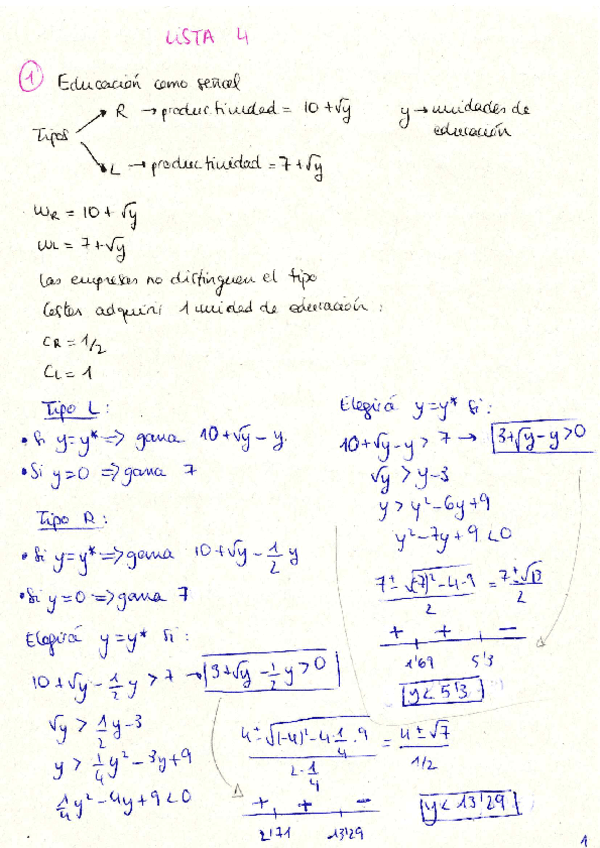 LISTA 4
① Educación como señal
Tipos
R → productividad = 10 + √y
L → productividad = 7 + √y
y → unidades de educación
WR = 10 + √y
WL = 7 + √y
Las empresas no distinguen el tipo
Costes adquirir 1 unidad de educación :
CR = 1/2
CL = 1
Tipo L :
• Si y = y* => gana 10 + √y - y.
• Si y = 0 => gana 7
Tipo R :
• Si y = y* => gana 10 + √y - 1/2 y
• Si y = 0 => gana 7
Elegirá y = y* si :
10 + √y - 1/2 y > 7 → 3 + √y - 1/2 y > 0
√y > 1/2 y - 3
y > 1/4 y² - 3y + 9
1/4 y² - 4y + 9 < 0
(4 ± √((-4)² - 4·1/4·9)) / (2·1/4) = (4 ± √7) / (1/2)
+ + -
2'71 13'29
y < 13'29
Elegirá y = y* si :
10 + √y - y > 7 → 3 + √y - y > 0
√y > y - 3
y > y² - 6y + 9
y² - 7y + 9 < 0
(7 ± √((-7)² - 4·9)) / 2 = (7 ± √13) / 2
+ + -
1'69 5'3
y < 5'3
1